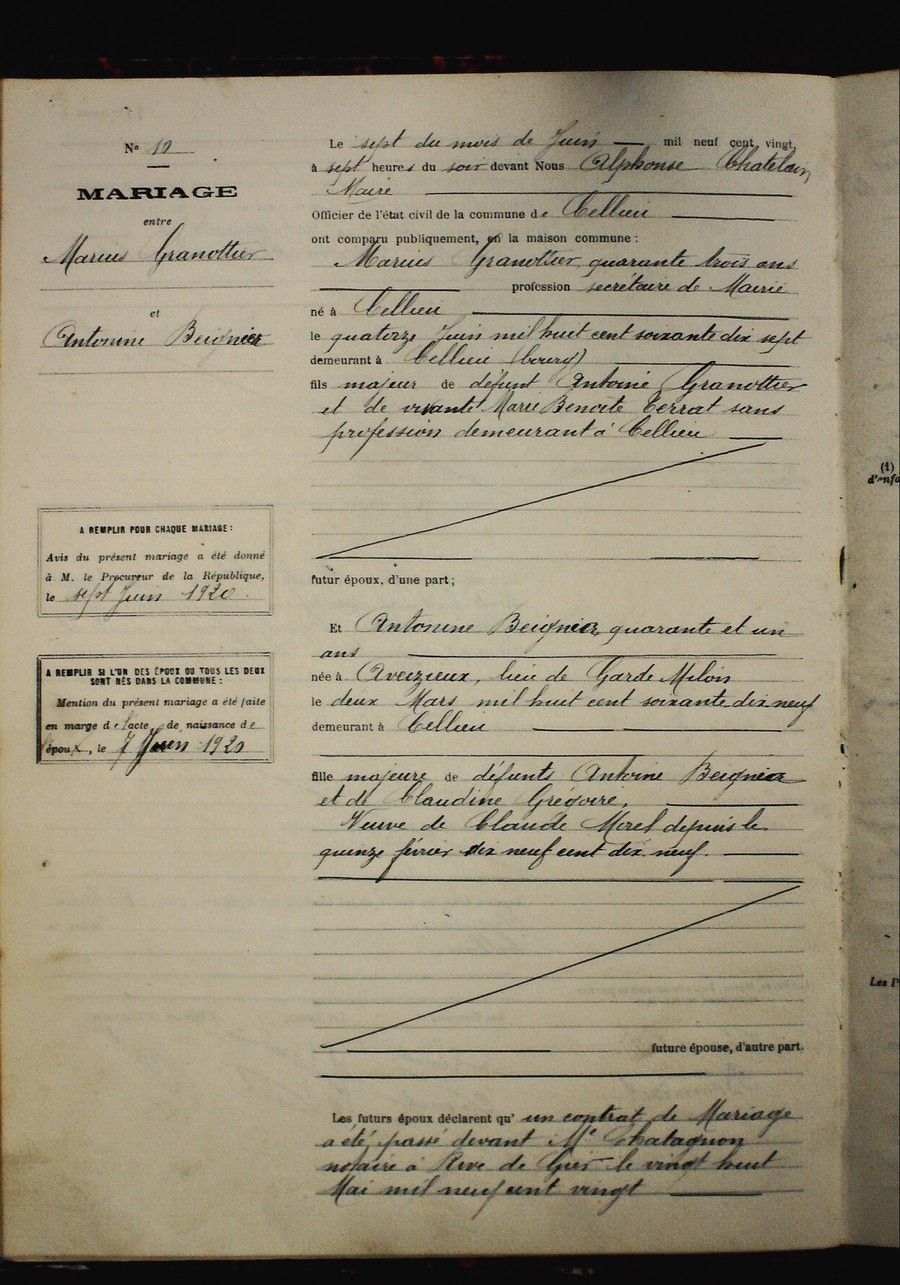 N° 10
MARIAGE
entre
Marius Granottier
et
Antonine Beignier
A REMPLIR POUR CHAQUE MARIAGE :
Avis du présent mariage a été donné
à M. le Procureur de la République,
le sept Juin 1920.
A REMPLIR SI L'UN DES ÉPOUX OU TOUS LES DEUX
SONT NÉS DANS LA COMMUNE :
Mention du présent mariage a été faite
en marge de l'acte de naissance de
époux, le 7 Juin 1920
Le sept du mois de Juin mil neuf cent vingt,
à sept heures du soir devant Nous Alphonse Chatelain,
Maire
Officier de l'état civil de la commune de Cellieu
ont comparu publiquement, en la maison commune :
Marius Granottier, quarante trois ans
profession secrétaire de Mairie
né à Cellieu
le quatorze Juin mil huit cent soixante dix sept
demeurant à Cellieu (bourg)
fils majeur de défunt Antoine Granottier
et de vivante Marie Benoite Terrat sans
profession demeurant à Cellieu
futur époux, d'une part ;
Et Antonine Beignier, quarante et un
ans
née à Aveizieux, lieu de Garde Milon
le deux Mars mil huit cent soixante dix neuf
demeurant à Cellieu
fille majeure de défunts Antoine Beignier
et de Claudine Grégoire,
Veuve de Claude Morel depuis le
quinze février dix neuf cent dix neuf.
future épouse, d'autre part.
Les futurs époux déclarent qu' un contrat de Mariage
a été passé devant Me Chatagnon
notaire à Rive de Gier le vingt huit
Mai mil neuf cent vingt
(1)
d'enfa
Les